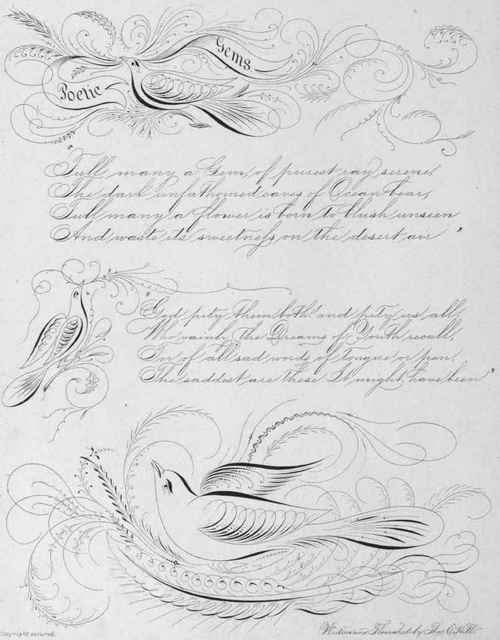 Poetic
Gems
Full many a Gem, of purest ray serene,
The dark unfathomed caves of Ocean bear,
Full many a flower is born to blush unseen
And waste its sweetness on the desert air"
God pity them both! and pity us all,
Who vainly the Dreams of Youth recall,
For of all sad words of tongue or pen,
The saddest are these It might have been"
Written and Flourished by
Copyright